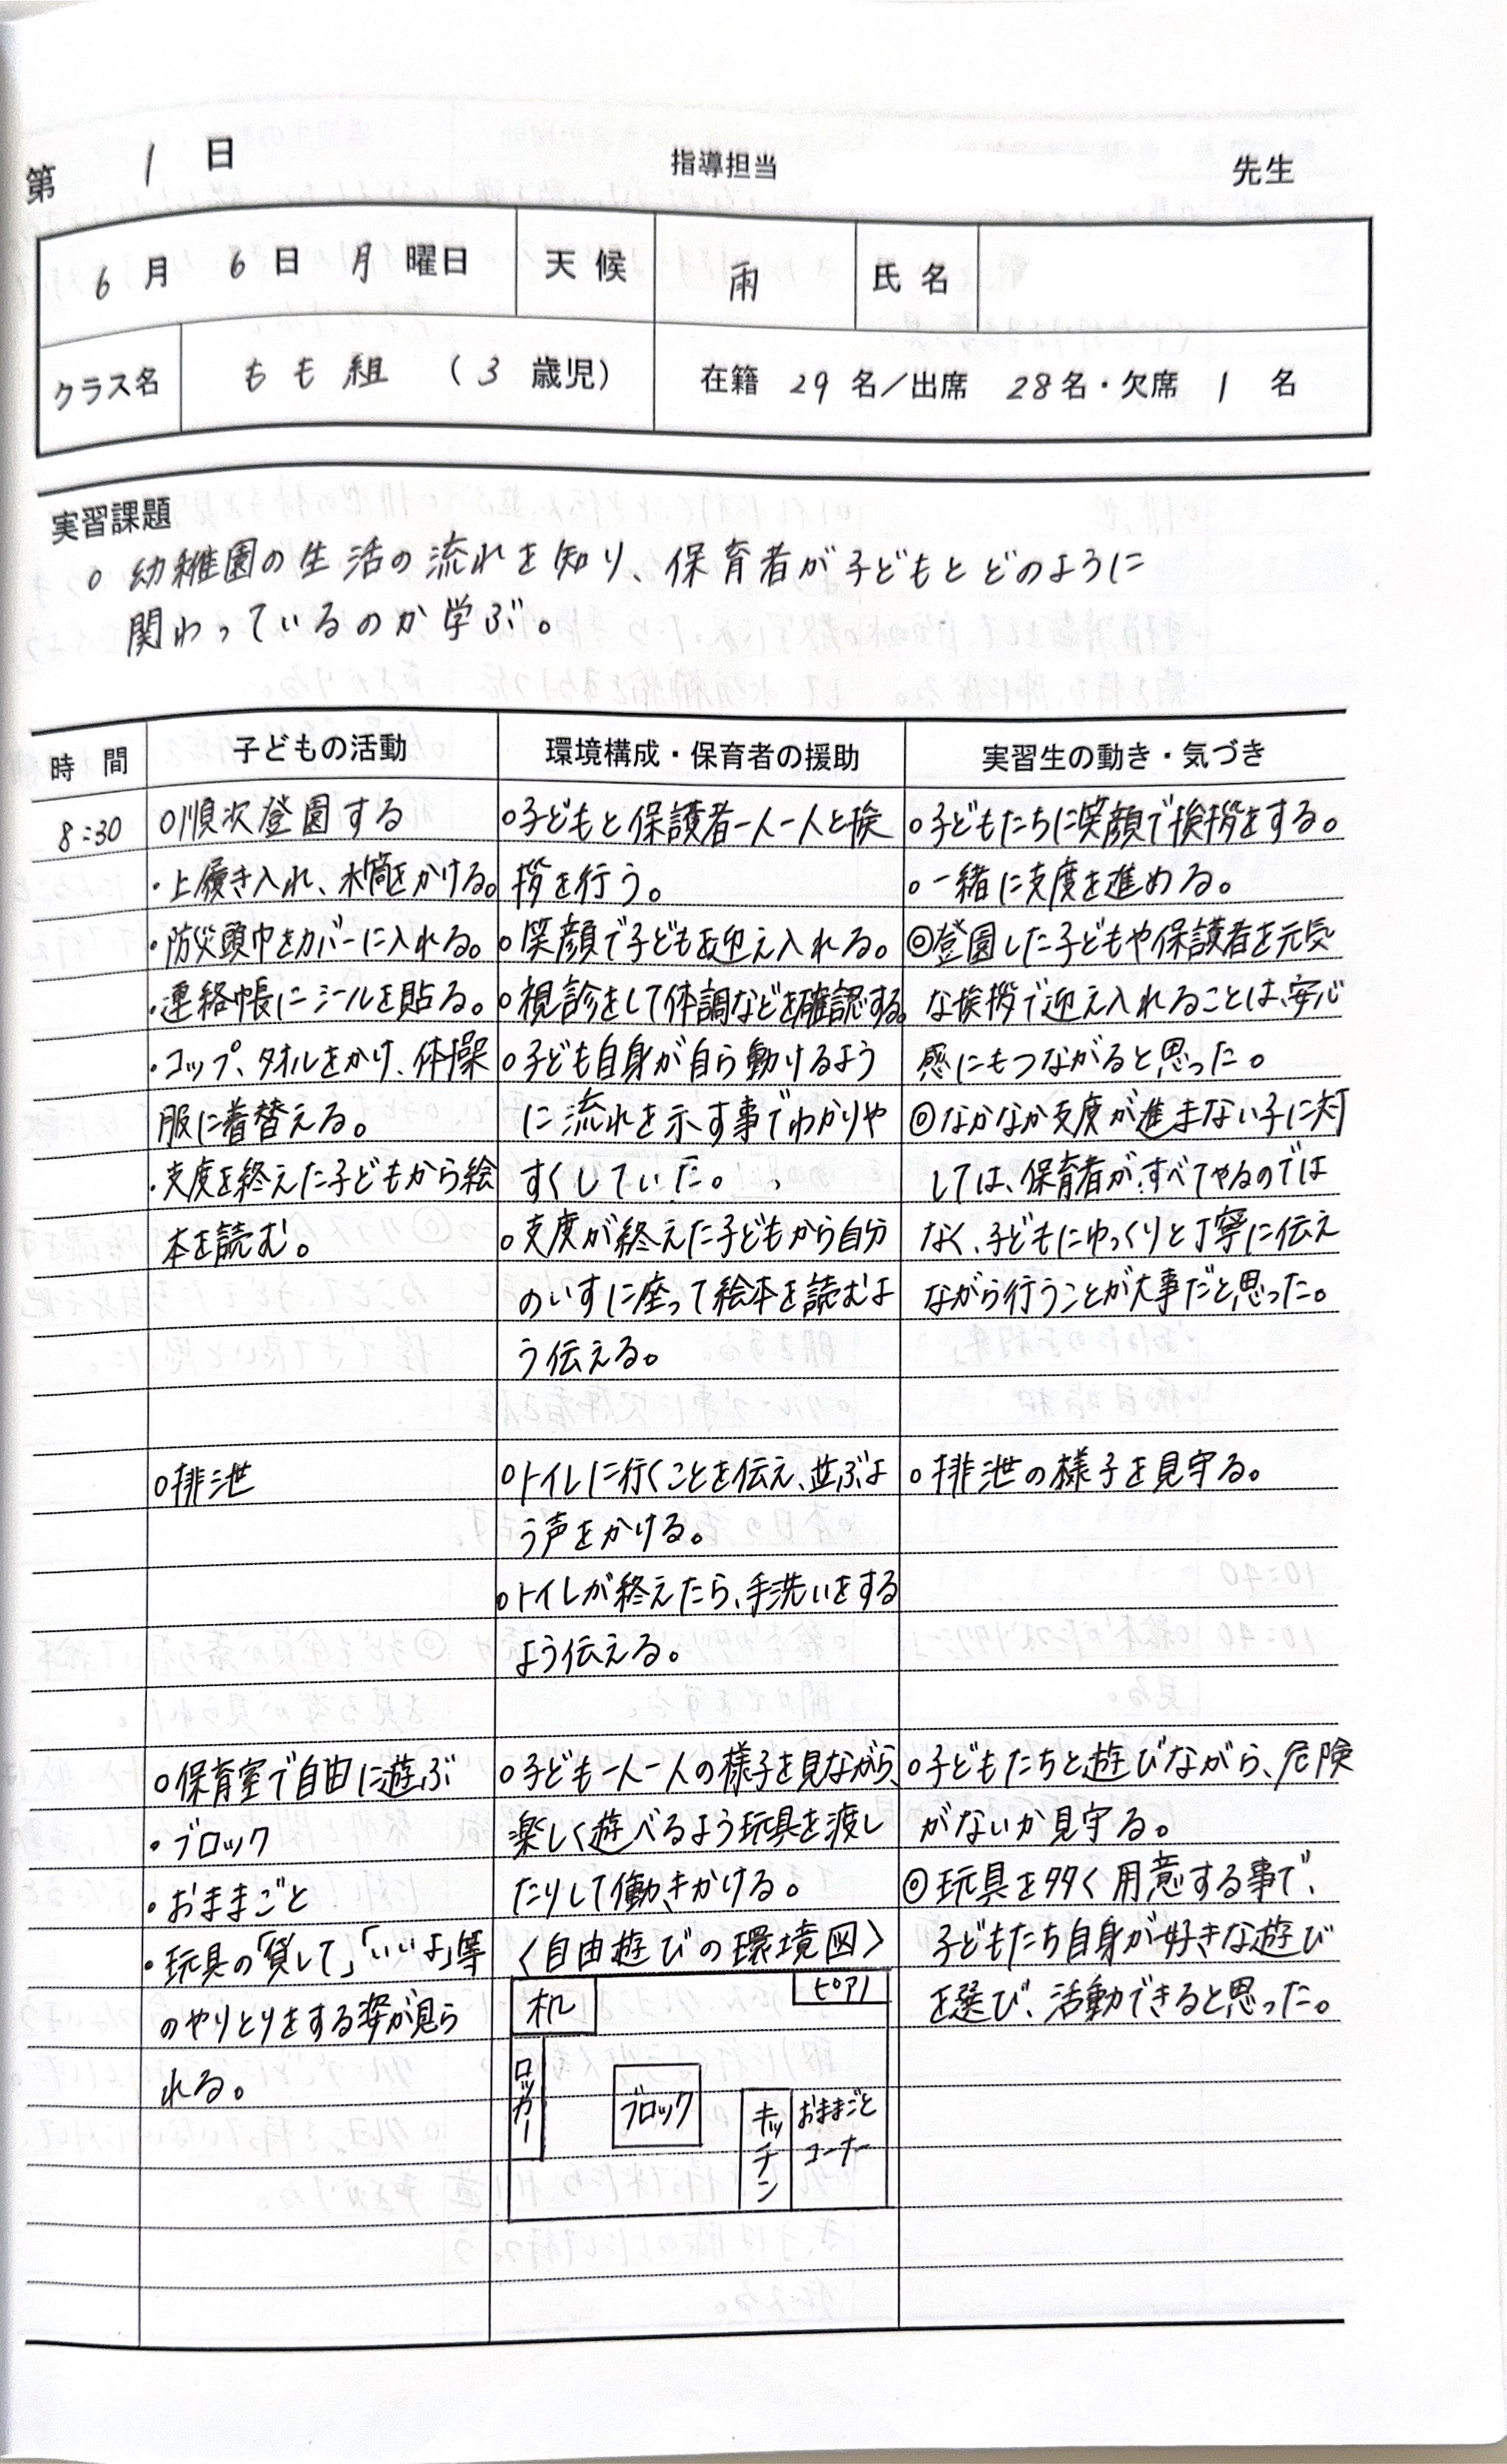 第 1 日 指導担当 先生
6 月 6 日 月 曜日 天候 雨 氏名
クラス名 もも組 (3 歳児) 在籍 29 名／出席 28 名・欠席 1 名
実習課題
○ 幼稚園の生活の流れを知り、保育者が子どもとどのように
関わっているのか学ぶ。
時間 子どもの活動 環境構成・保育者の援助 実習生の動き・気づき
8:30 ○順次登園する ○子どもと保護者一人一人と挨 ○子どもたちに笑顔で挨拶をする。
・上履き入れ、水筒をかける。 拶を行う。 ○一緒に支度を進める。
・防災頭巾をカバーに入れる。 ○笑顔で子どもを迎え入れる。 ◎登園した子どもや保護者を元気
・連絡帳にシールを貼る。 ○視診をして体調などを確認する。 な挨拶で迎え入れることは、安心
・コップ、タオルをかけ、体操 ○子ども自身が自ら動けるよう 感にもつながると思った。
服に着替える。 に流れを示す事でわかりや ◎なかなか支度が進まない子に対
・支度を終えた子どもから絵 すくしていた。 しては、保育者がすべてやるのでは
本を読む。 ○支度が終えた子どもから自分 なく、子どもにゆっくりと丁寧に伝え
のいすに座って絵本を読むよ ながら行うことが大事だと思った。
う伝える。
○排泄 ○トイレに行くことを伝え、並ぶよ ○排泄の様子を見守る。
う声をかける。
○トイレが終えたら、手洗いをする
よう伝える。
○保育室で自由に遊ぶ ○子ども一人一人の様子を見ながら、 ○子どもたちと遊びながら、危険
・ブロック 楽しく遊べるよう玩具を渡し がないか見守る。
・おままごと たりして働きかける。 ◎玩具を多く用意する事で、
・玩具の「貸して」「いいよ」等 〈自由遊びの環境図〉 子どもたち自身が好きな遊び
のやりとりをする姿が見ら 机 ピアノ を選び、活動できると思った。
れる。 ロッカー ブロック キッチン おままごと
コーナー